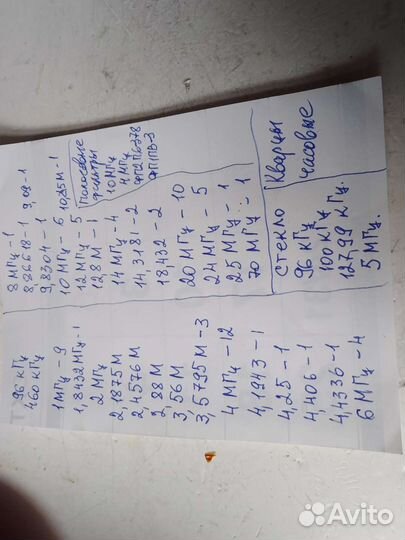 96 кГц
460 кГц
1МГц - 9
1,8432 МГц - 1
2 МГц
2,1875 М
2,4576 М
2,88 М
3,56 М
3,5795 М - 3
4 МГц - 12
4,1943 - 1
4,25 - 1
4,406 - 1
4,4336 - 1
6 МГц - 4
8 МГц - 1
8,86618 - 1
9,8304 - 1
10 МГц - 6
12 МГц - 5
12,8 М - 1
14 МГц - 4
14,3181 - 2
18,432 - 2
20 МГц - 10
24 МГц - 5
25 МГц - 1
70 МГц - 1
9,09 - 1
10,25 М - 1
фильтры
10 МГц
4 МГц
стекло
96 кГц
100 кГц
127,99 кГц.
5 МГц.
Кварцы
часовые
Avito